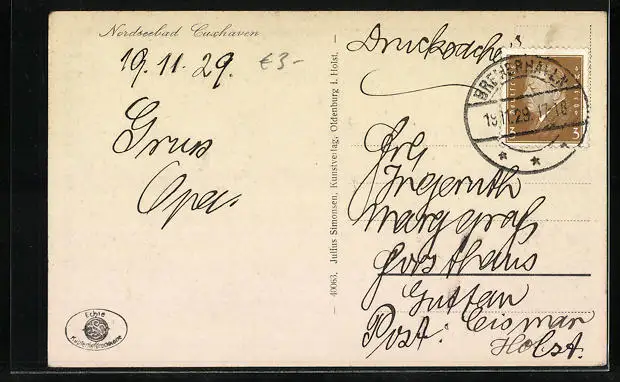 Nordseebad Cuxhaven
19.11.29.
€3-
Gruss
Opa.
Drucksache
BREMERHAVEN
19.11.29. 17-18
3 3
40063. Julius Simonsen, Kunstverlag, Oldenburg i. Holst.
Frl
Ingeruth
Marggraf
Forsthaus
Guttau
Post: Cismar
Holst.
Echte
Kupfertiefdruckkarte